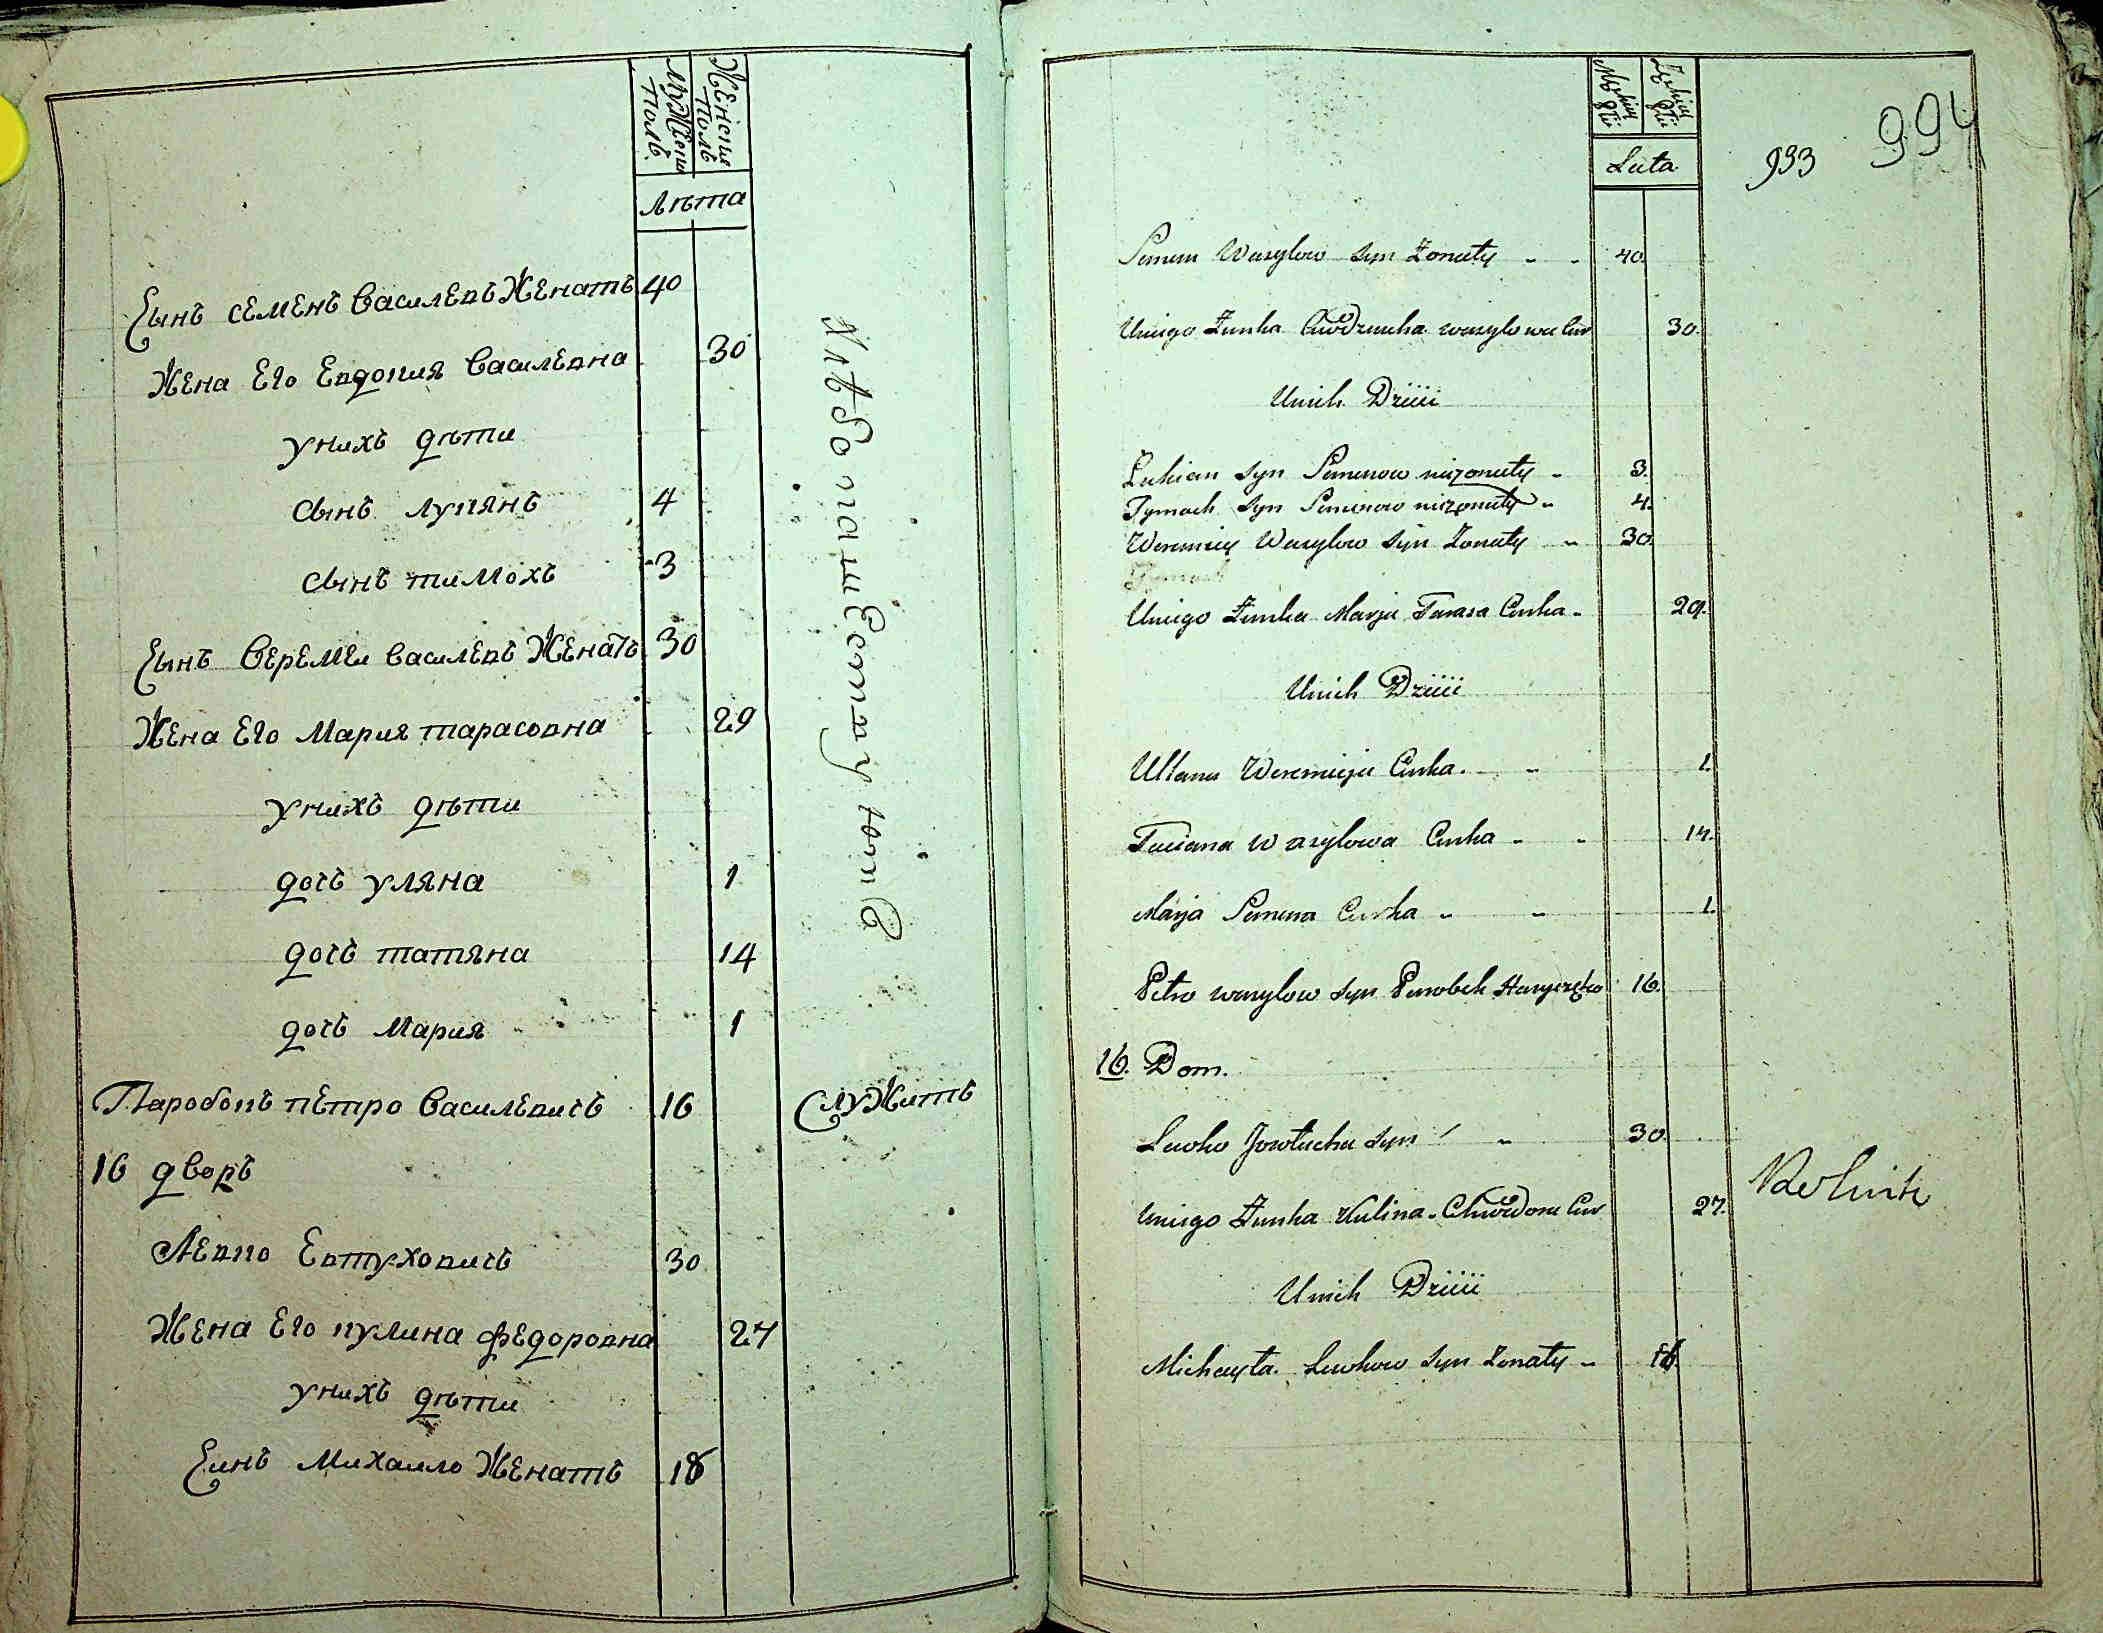 Мужески Полъ
Женски Полъ
Лѣта
Сынъ семенъ Василевъ Женатъ 40
Жена Его Евдокия Василевна 30
Унихъ дѣти
Сынъ лукянъ 4
Сынъ тимохъ 3
Сынъ Веремеи василевъ Женатъ 30
Жена Его Мария тарасовна 29
Унихъ дѣти
дочь уляна 1
дочь татяна 14
дочь Мария 1
Паробокъ петро Василевичъ 16 Служитъ
16 дворъ
Левко Евтуховичъ 30
Жена Его кулина федоровна 27
Унихъ дѣти
Синъ Михаило Женатъ 18
Хлѣбо пашествуютъ
Lata
933
994
Semen Wasylow Syn Żonaty 40.
Uniego Żonka Wasylowa 30.
Unich Dzieci
Łukian Syn Semenow nieżonaty 3.
Tymoch Syn Semenow nieżonaty 4.
Weremiey Wasylow Syn Żonaty 30.
Uniego Żonka Marja Tarasa Curka 29.
Unich Dzieci
Ullana Weremieja Curka. 1.
Taciana Wasylowa Curka 14.
Marja Semena Curka 1.
Petro wasylow Syn Parobek 16.
16. Dom.
Lewko Jowtucha Syn 30.
Uniego Żonka Kulina Chwedora Cur 27.
Unich Dzieci
Michayła Lewkow Syn Żonaty
Rolnik